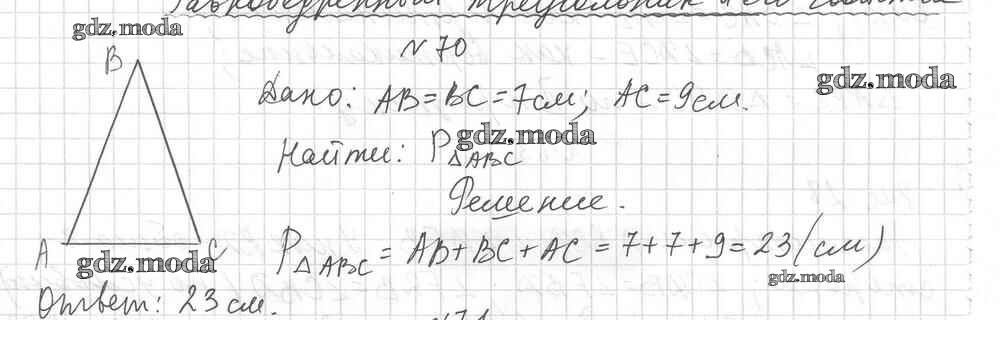 Равнобедренный треугольник и его свойства
gdz.moda
N 70
B
gdz.moda
Дано: AB = BC = 7 см; AC = 9 см.
gdz.moda
Найти: P△ABC
Решение.
A
C
P△ABC = AB + BC + AC = 7 + 7 + 9 = 23 (см)
gdz.moda
gdz.moda
Ответ: 23 см.